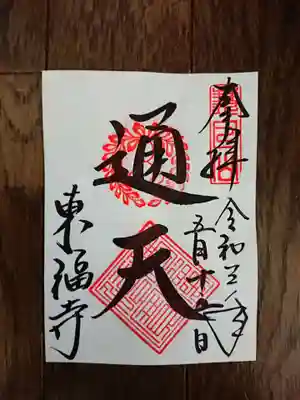 奉拝
令和三年
五月十七日
通天
東福寺